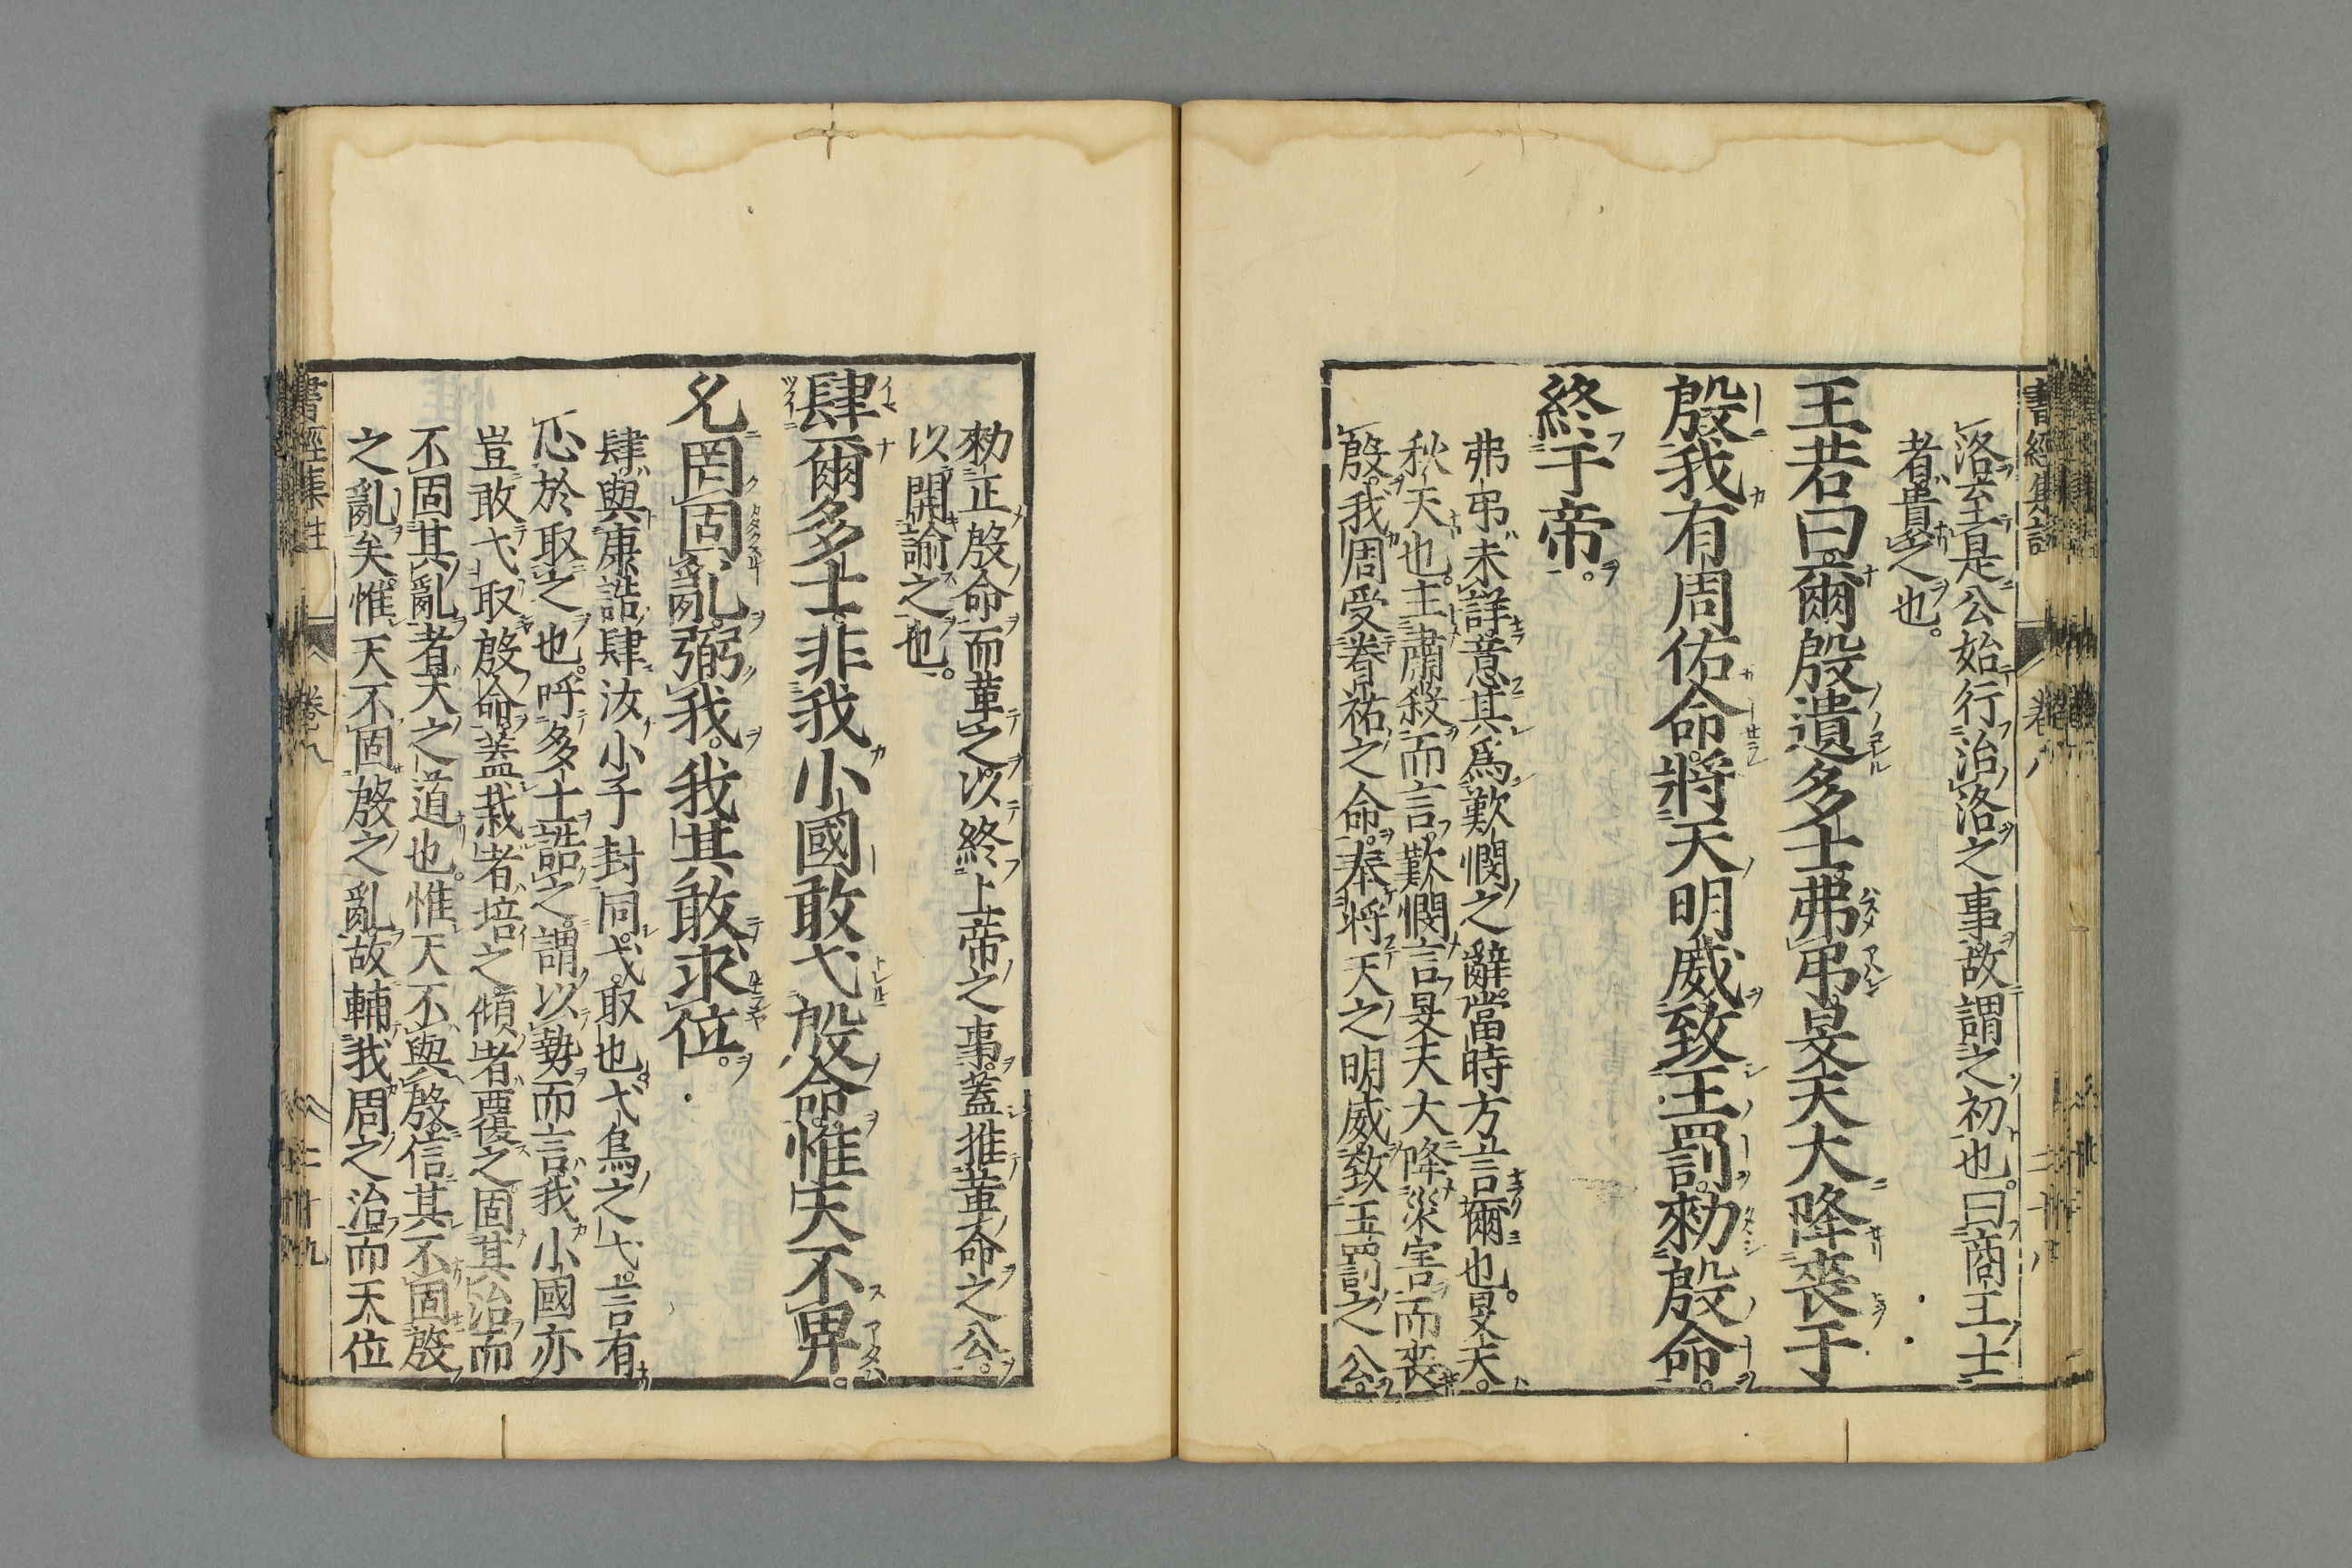 洛至是公始行治洛之事故謂之初也曰商王士
者貴之也。
王若曰爾殷遺多士弗弔旻天大降喪于
殷我有周佑命將天明威致王罰勑殷命。
終于帝。
弗弔未詳意其爲歎憫之辭當時方言爾也。旻天。
秋天也。主肅殺而言歎憫言旻天大降災害而喪
殷我周受眷祐之命奉將天之明威致王罰之公。
勑正殷命而革之以終上帝之事蓋推革命之公。
以開諭之也。
肆爾多士非我小國敢弋殷命惟天不畀。
允罔固亂弼我。我其敢求位。
肆與康誥肆汝小子封同弋取也弋鳥之弋言有
心於取之也。呼多士誥之謂以勢而言我小國亦
豈敢弋取殷命蓋栽者培之傾者覆之固其治而
不固其亂者天之道也。惟天不與殷信其不固殷
之亂矣惟天不固殷之亂故輔我周之治而天位
書經集註 卷八 二十九